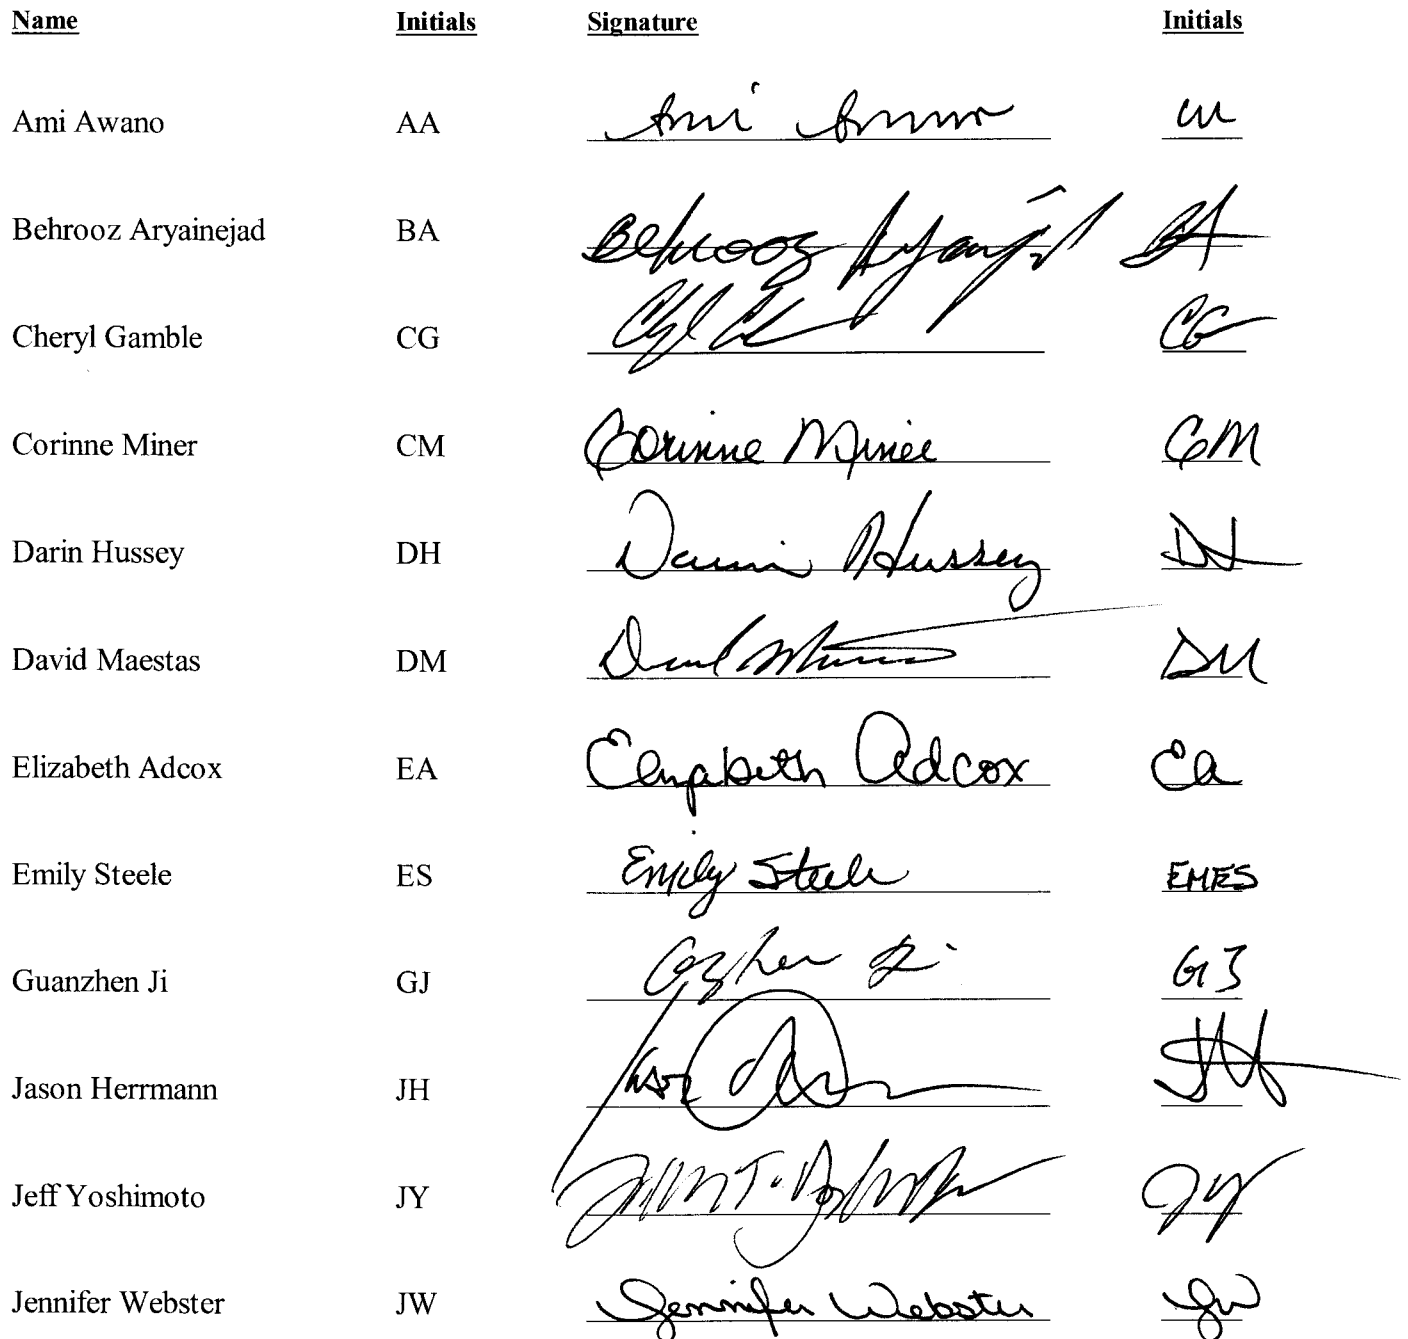 Name Initials Signature Initials
Ami Awano AA Ami Awano
Behrooz Aryainejad BA Behrooz BA
Cheryl Gamble CG CG
Corinne Miner CM Corinne Miner CM
Darin Hussey DH Darin Hussey DH
David Maestas DM David DM
Elizabeth Adcox EA Elizabeth Adcox Ea
Emily Steele ES Emily Steele EMES
Guanzhen Ji GJ GJ
Jason Herrmann JH JH
Jeff Yoshimoto JY JY
Jennifer Webster JW Jennifer Webster JW